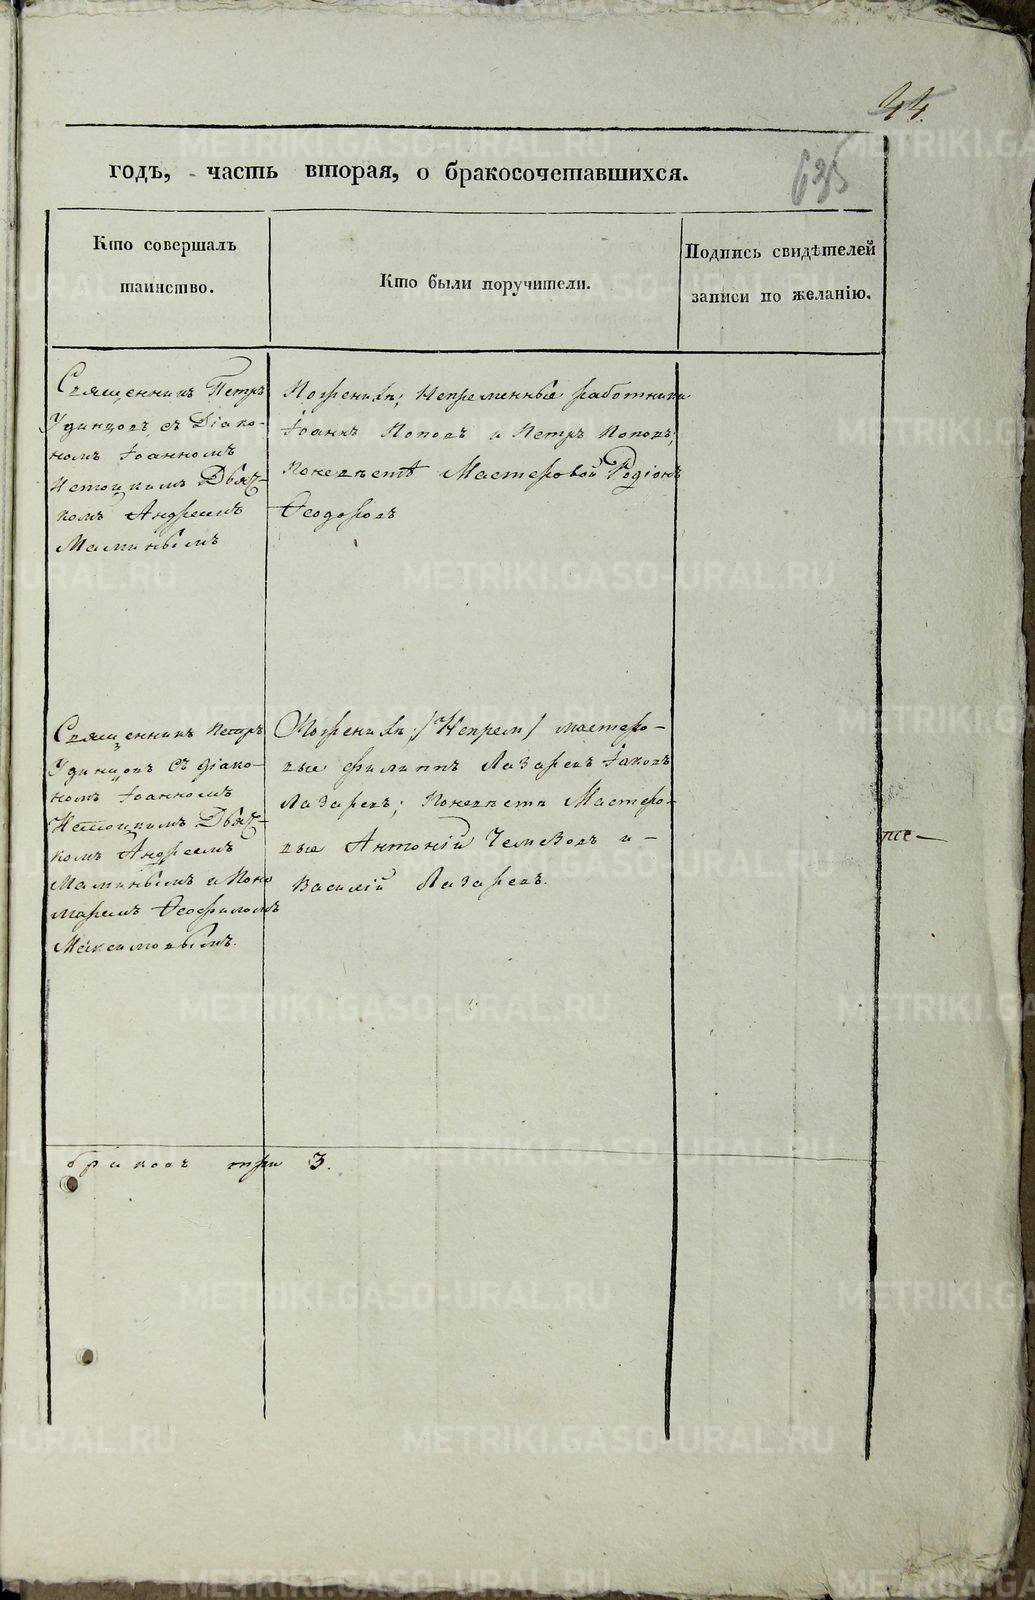 44.
635
годъ, часть вторая, о бракосочетавшихся.
Кто совершалъ
таинство.
Кто были поручители.
Подпись свидѣтелей
записи по желанію.
Священникъ Петръ
Удинцовъ съ Діако-
номъ Іоанномъ
Дьяч-
комъ Андреемъ
Маминымъ
По женихѣ; Непременные работники
Іоаннъ Поповъ и Петръ Поповъ;
По невѣстѣ Мастеровой Родіонъ
Ѳеодоровъ
Священникъ Петръ
Удинцовъ съ діако-
номъ Іоанномъ
Дьяч-
комъ Андреемъ
Маминымъ и Поно
маремъ Ѳеофиломъ
Максимовымъ.
По женихѣ; /Непрем/ мастеро-
вые Филиппъ Лазаревъ Іаковъ
Лазаревъ; По невѣстѣ Мастеро-
вые Антоній и -
Василій Лазаревъ.
браковъ три 3.
METRIKI.GASO-URAL.RU